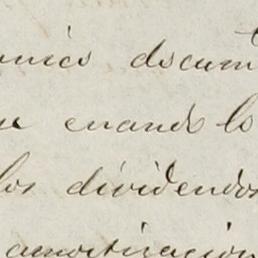 unico docum
que cuando lo
los dividendos
amortizacion